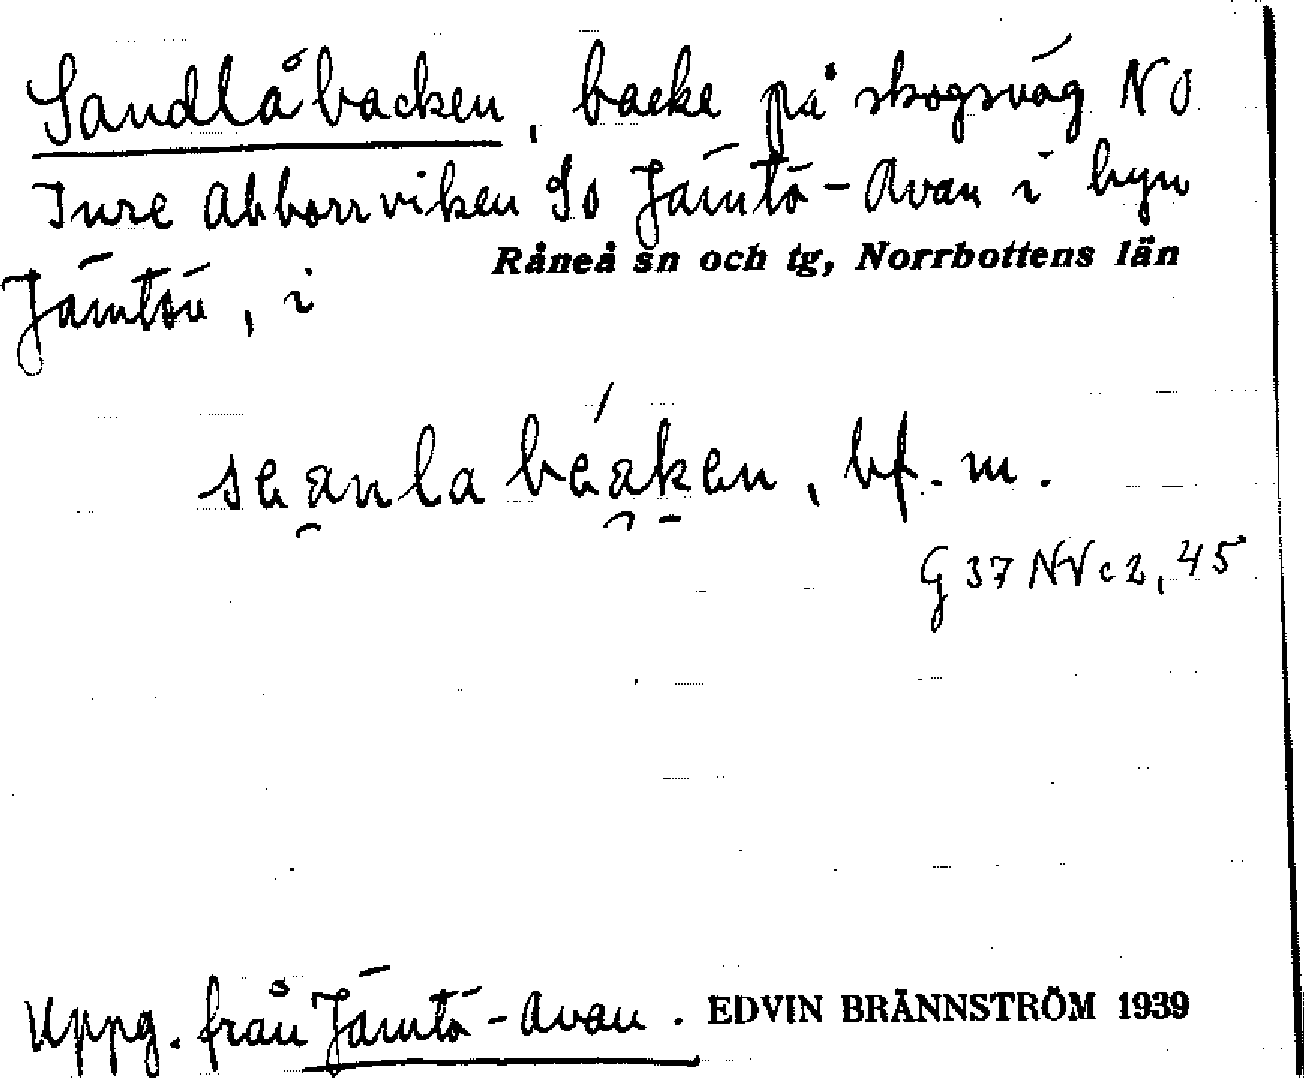 Sandlåbacken, backe på skogsväg NO
Inre Abborrviken So Jämtö-Avan i byn
Råneå sn och tg, Norrbottens län
Jämtön, i
bf. m.
G 37 NV c 2, 45
Uppg. från Jämtö-Avan. EDVIN BRÄNNSTRÖM 1939